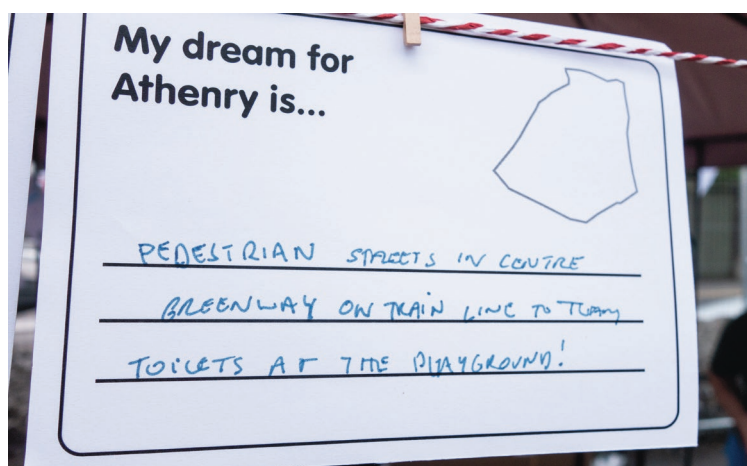 My dream for
Athenry is...
PEDESTRIAN STREETS IN CENTRE
GREENWAY ON TRAIN LINE TO TUAM
TOILETS AT THE PLAYGROUND!